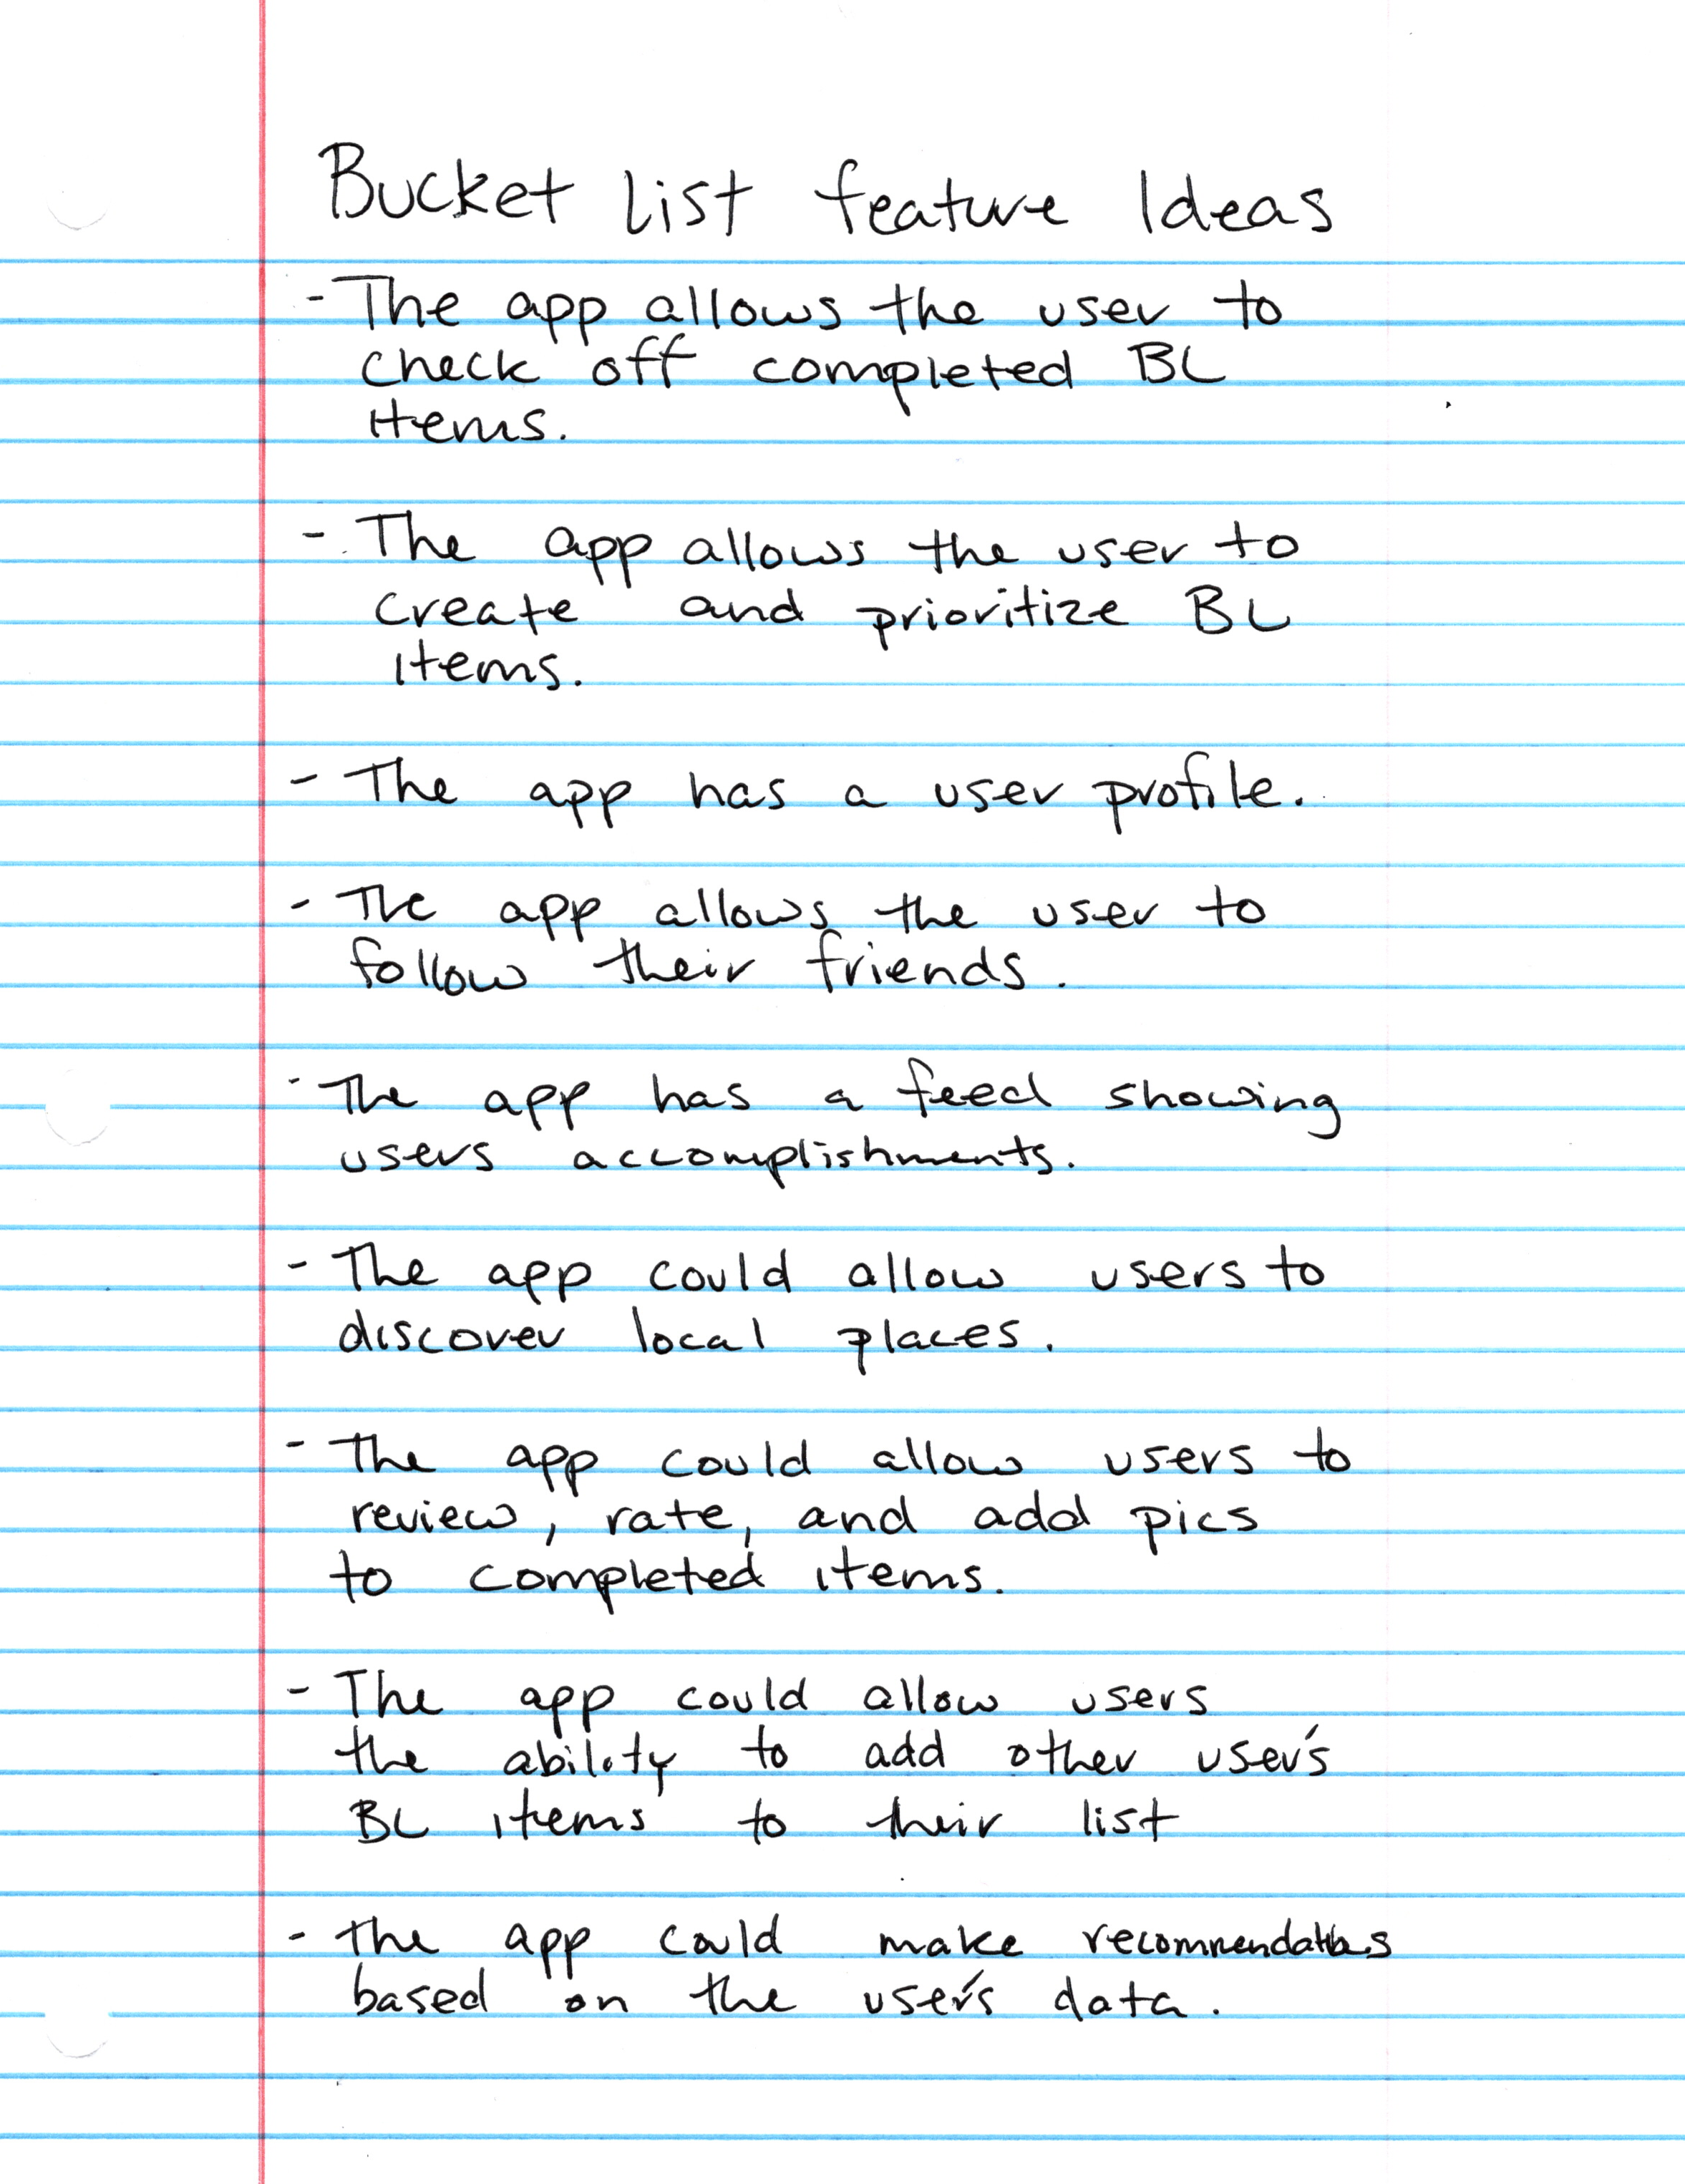 Bucket List feature Ideas
- The app allows the user to
check off completed BL
items.
- The app allows the user to
create and prioritize BL
items.
- The app has a user profile.
- The app allows the user to
follow their friends.
- The app has a feed showing
users accomplishments.
- The app could allow users to
discover local places.
- The app could allow users to
review, rate, and add pics
to completed items.
- The app could allow users
the ability to add other user's
BL items to their list
- The app could make recommendations
based on the user's data.